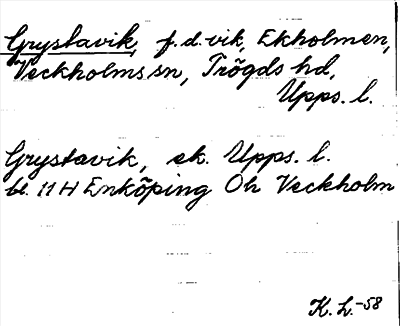 Grystavik, f.d. vik, Ekholmen,
Veckholms sn, Trögds hd,
Upps. l.
Grystavik, ek. Upps. l.
bl. 11 H Enköping Öh Veckholm
K. L. -58